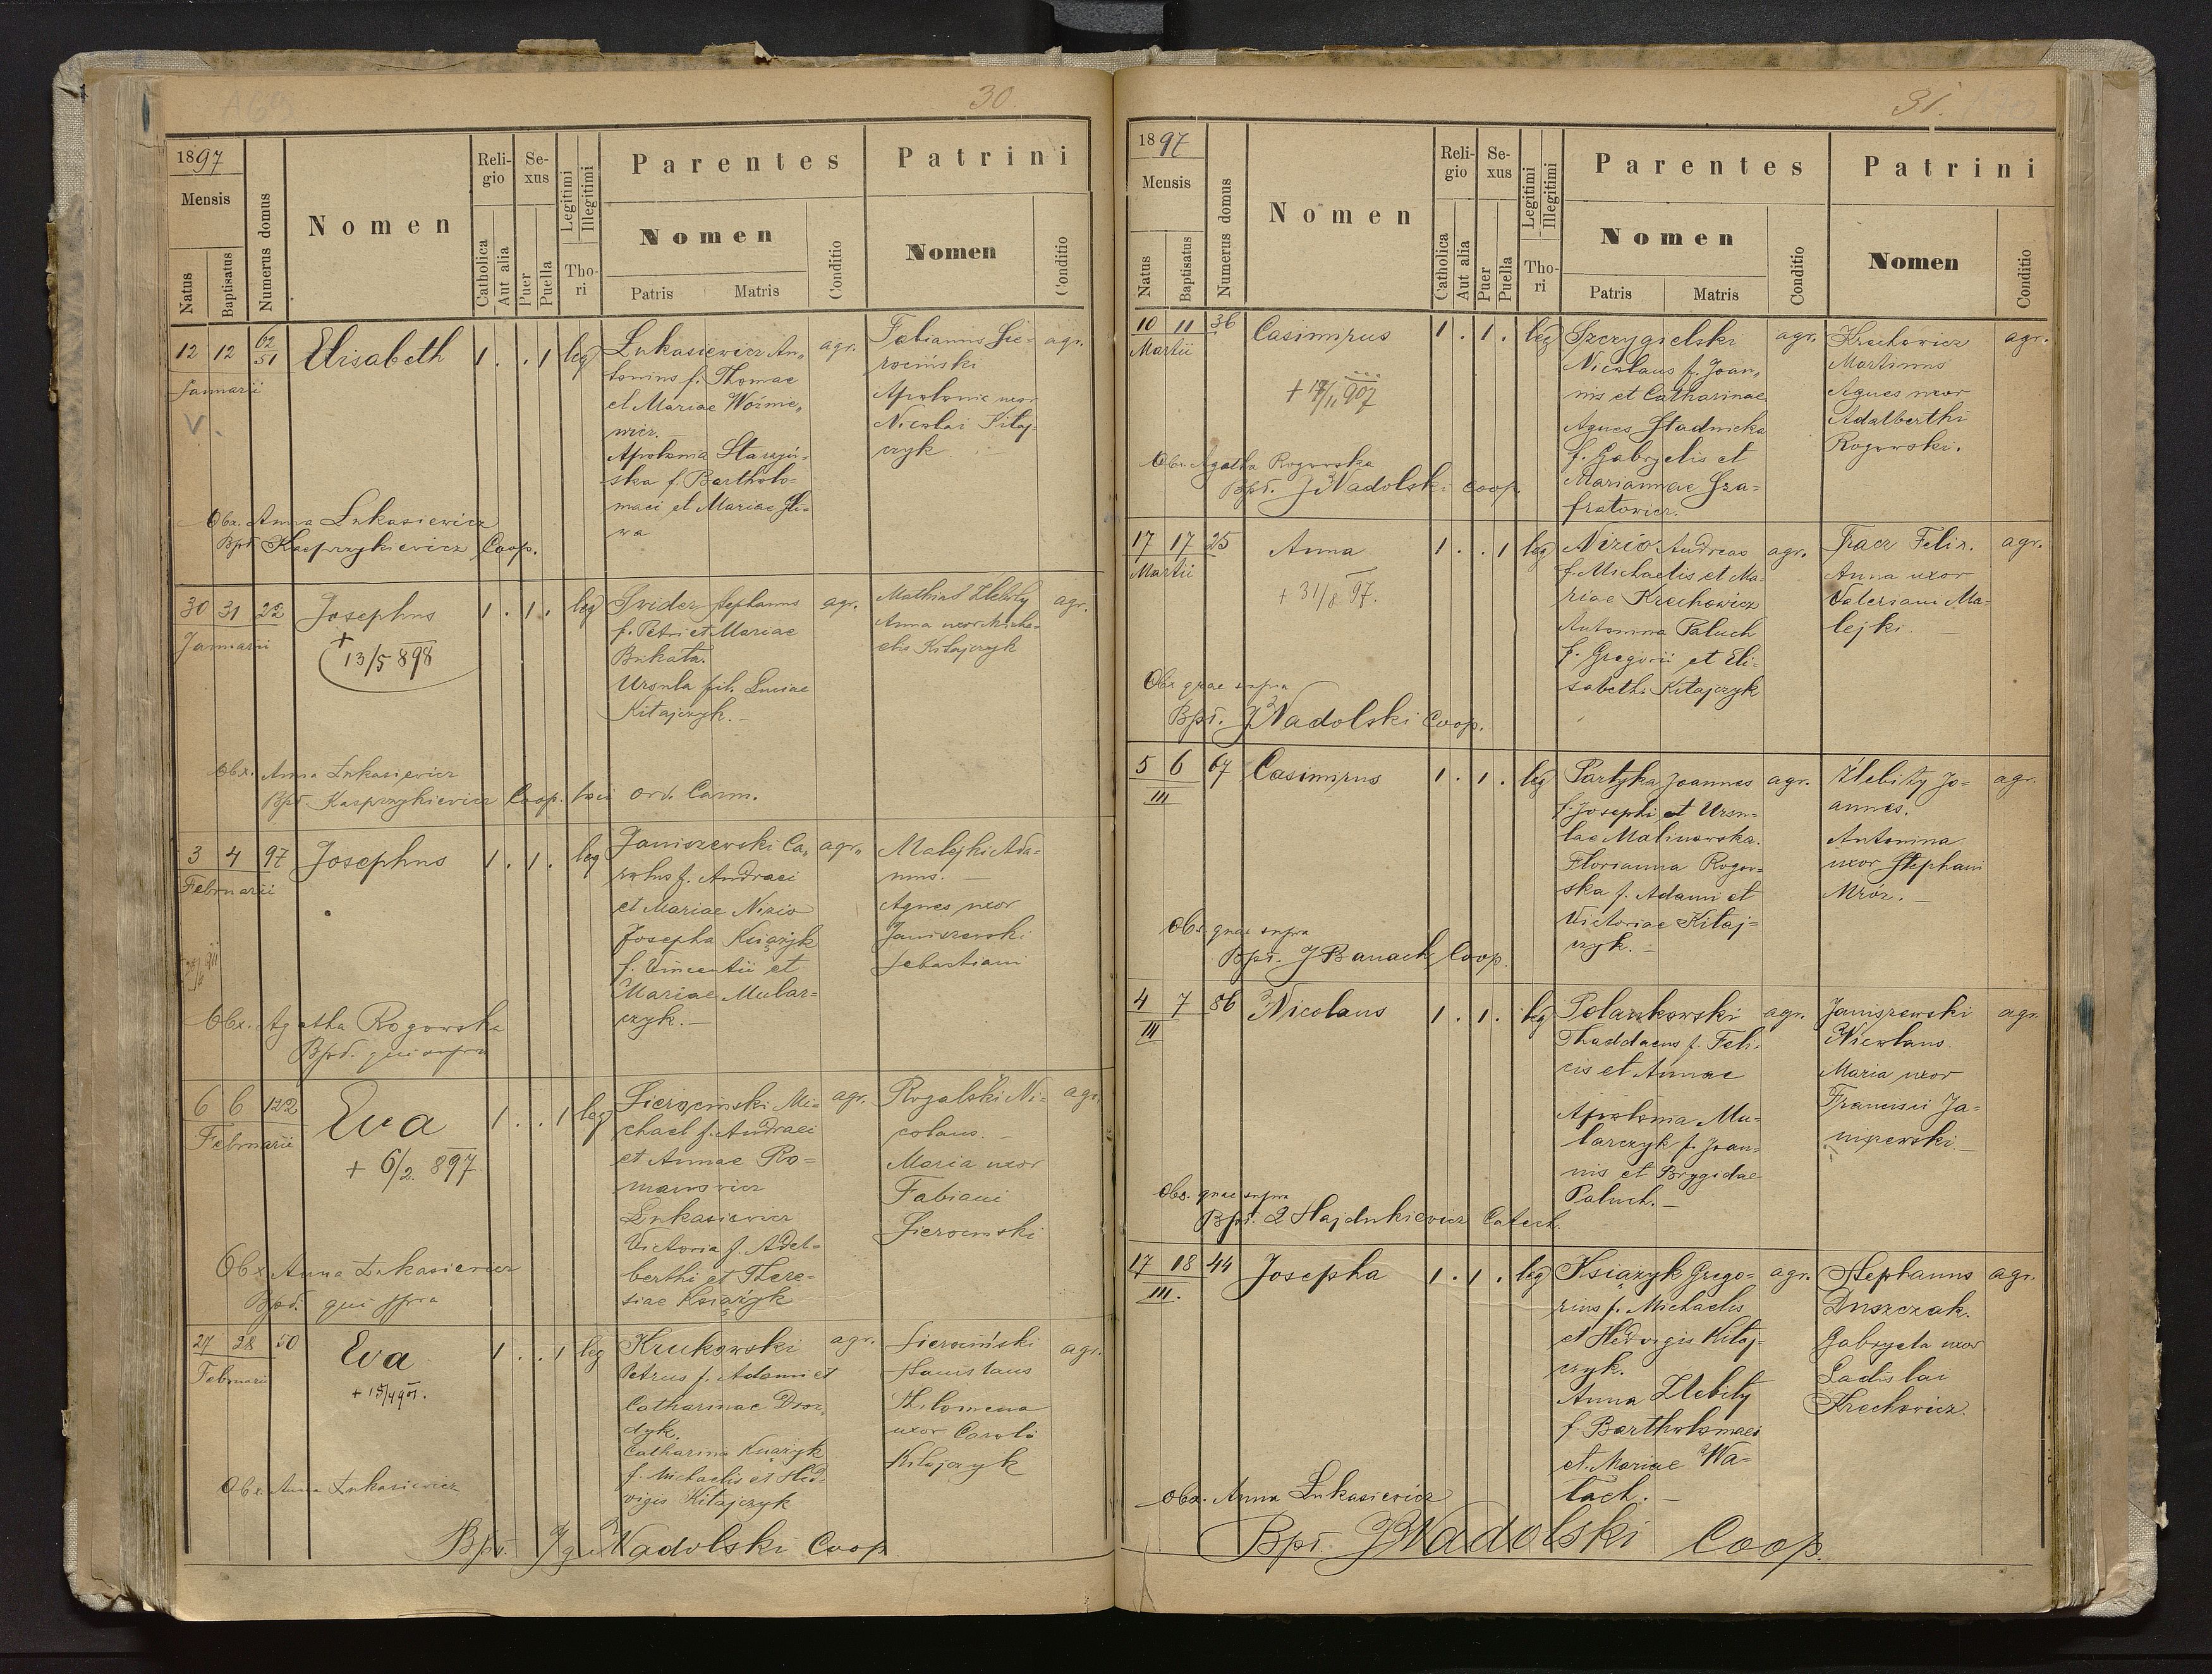 30.
1897
Mensis
Natus
Baptisatus
Numerus domus
Nomen
Religio
Catholica
Aut alia
Sexus
Puer
Puella
Legitimi
Illegitimi
Thori
Parentes
Nomen
Patris
Matris
Conditio
Patrini
Nomen
Conditio
12 12 62/51 Elisabeth 1 . . 1 leg
Januarii
Łukasiewicz An„
tonius f. Thomae
et Mariae Woźnie„
wicz.
Apolonia Starzyń-
ska f. Bartholo-
maei et Mariae Śli-
wa
agr.
Fabianus Sie-
rociński
Apolonie uxor
Nicolai Kitaj-
czyk
agr.
Obx. Anna Łukasiewicz
Bpt. Kacprzykiewicz Coop.
30 31 22 Josephus 1 . 1 . leg
Januarii
+
13/5 898
Świder Stephanus
f. Petri et Mariae
Bukata.
Ursula fil. Luciae
Kitajczyk. —
agr.
Mathias Zlebity
Anna uxor Micha-
elis Kitajczyk
agr.
Obx. Anna Łukasiewicz
Bpt. Kasprzykiewicz Coop. loci ord. Carm.
3 4 97 Josephus 1 . 1 . leg
Februarii
Janiszewski Ca„
rolus f. Andraei
et Mariae Nizio
Josepha Książyk
f. Vincentii et
Mariae Mular=
czyk. —
agr.
Malejki Ada-
mus. —
Agnes uxor
Janiszewski
Sebastiani
Obx. Agatha Rogowska
Bpt. qui supra
6 6 122 Eva 1 . . 1 leg
Februarii
+ 6/2. 897
Sierociński Mi=
chael f. Andraei
et Annae Ro=
manowicz
Łukasiewicz
Victoria f. Adal=
berthi et There=
siae Książyk
agr.
Rogalski Ni=
colaus. —
Maria uxor
Fabiani
Sierocinski
agr.
Obx Anna Łukasiewicz
Bpt. qui supra
27 28 50 Eva 1 . . 1 leg
Februarii
Krukowski
Petrus f. Adami et
Catharinae Droz„
dyk.
Catharina Książyk
f. Michaelis et Hed-
vigis Kitajczyk
agr.
Sierociński
Stanislaus
Philomena
uxor Caroli
Kitajczyk
agr.
Obx. Anna Łukasiewicz
Bpt. Ig. Nadolski Coop.
31.
1897
Mensis
Natus
Baptisatus
Numerus domus
Nomen
Religio
Catholica
Aut alia
Sexus
Puer
Puella
Legitimi
Illegitimi
Thori
Parentes
Nomen
Patris
Matris
Conditio
Patrini
Nomen
Conditio
10 11 36 Casimirus 1 . 1 . leg
Martii
Szczygielski
Nicolaus f. Joan„
nis et Catharinae
Agnes Stadnicka
f. Gabryelis et
Mariannae Sza=
fratowicz.
agr.
Krechowicz
Martinus
Agnes uxor
Adalberthi
Rogowski.
agr.
Obx. Agatha Rogowska
Bpt. J Nadolski coop.
17 17 25 Anna 1 . . 1 leg
Martii
+ 31/8 97.
Nizio Andreas
f. Michaelis et Ma-
riae Krechowicz
Antonina Paluch
f. Gregorii et Eli=
sabeth Kitajczyk
agr.
Tracz Felix.
Anna uxor
Valeriani Ma-
lejki. —
agr.
Obx quae supra
Bpt. J Nadolski Coop.
5 6 67 Casimirus 1 . 1 . leg
III
Partyka Joannes
f. Josephi et Ursu-
lae Malinowska.
Florianna Rogow=
ska f. Adami et
Victoriae Kitaj=
czyk. —
agr.
Zlebity Jo=
annes.
Antonina
uxor Stephani
Mróz. —
agr.
Obx quae supra
Bpt. J Banach Coop.
4 7 86 Nicolaus 1 . 1 . leg
III
Polaszkowski
Thaddaeus f. Feli-
cis et Annae
Apolonia Mu=
larczyk f. Joan=
nis et Brygidae
Paluch. —
agr.
Janiszewski
Nicolaus.
Maria uxor
Francisci Ja=
niszewski —
agr.
Obx. quae supra
Bpt. Hajdukiewicz Catech.
17 18 44 Josepha 1 . 1 . leg
III.
Książyk Grego=
rius f. Michaelis
et Hedvigis Kitaj-
czyk.
Anna Zlebity
f. Bartholomaei
et Mariae Wa-
łach. —
agr.
Stephanus
Duszczak.
Gabryela uxor
Ladislai
Krechowicz.
agr.
Obx. Anna Łukasiewicz
Bpt. J Nadolski Coop.